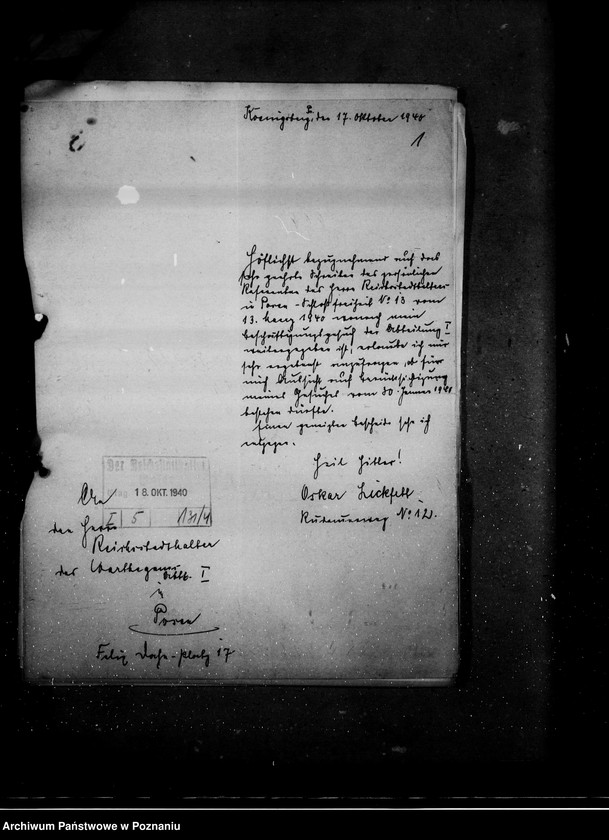 Koenigsberg, den 17. Oktober 1940
1
Höflichst bezugnehmend auf das
sehr geehrte Schreiben des persönlichen
Referenten des Herrn Reichsstatthalters
in Posen - Schloßfreiheit No 13 vom
13. 1940 wonach mein
Beschäftigungsgesuch der Abteilung I
weitergegeben ist, erlaube ich mir
sehr ergebenst anzufragen, ob für
mich Aussicht auf Berücksichtigung
meines Gesuches vom 30 Januar 1940
bestehen dürfte.
Einem geneigten Bescheide sehe ich
entgegen.
Heil Hitler!
Oskar
No 12.
Der Reichsstatthalter
18. OKT. 1940
I 5 131/4
An
den Herrn
Reichsstatthalter
des Warthegaues
Abtlg. I
in
Posen
Felix Dahn-platz 17
Archiwum Państwowe w Poznaniu